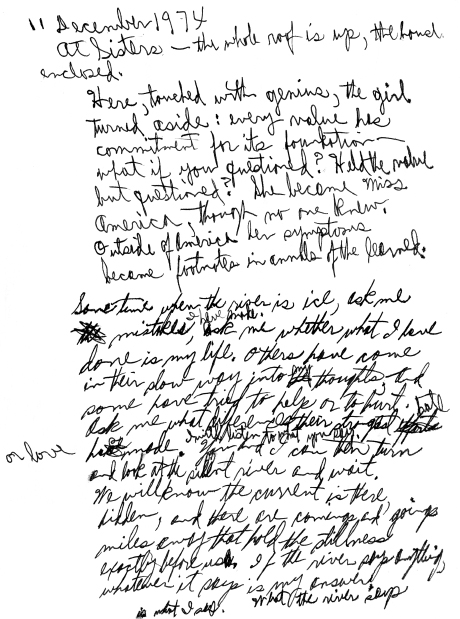 11 December 1974
At Sisters — the whole roof is up, the house
enclosed.
Here, touched with genius, the girl
turned aside: every value has
commitment for its foundation—
what if you questioned? Held the value
but questioned? She became Miss
America, though no one knew.
Outside of America her symptoms
became footnotes in annals of the learned.
Some time when the river is ice, ask me
I have made.
mistakes, ask me whether what I have
done is my life. Others have come
in their slow way into my thoughts, and
some have tried to help or to hurt.
ask me what difference their strongest
or love
hate
made. I will listen to what you say.
You and I can then turn
and look at the silent river and wait.
We will know the current is there,
hidden, and there are comings and goings
miles away that hold the stillness
exactly before us. If the river says anything,
whatever it says is my answer.
is what I say. What the river says